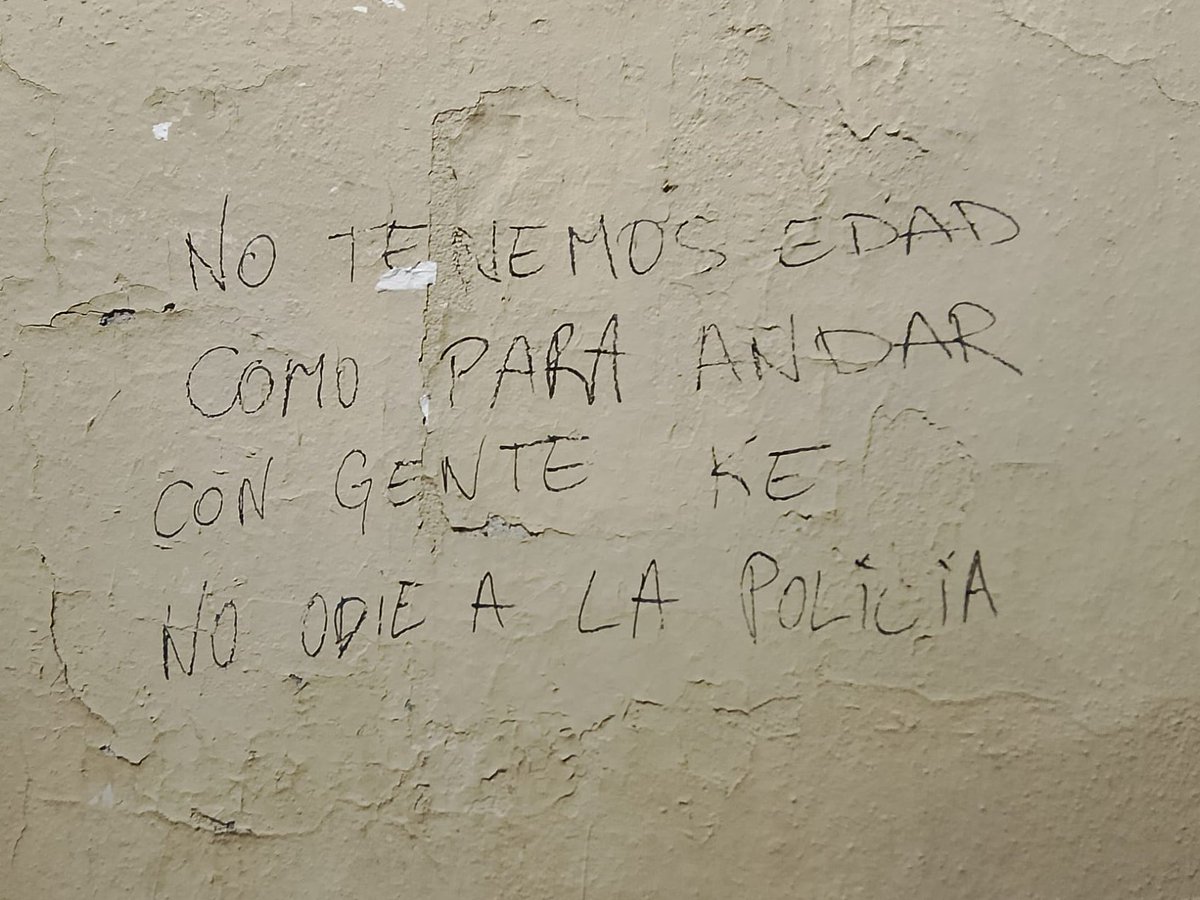 NO TENEMOS EDAD
COMO PARA ANDAR
CON GENTE KE
NO ODIE A LA POLiCiA